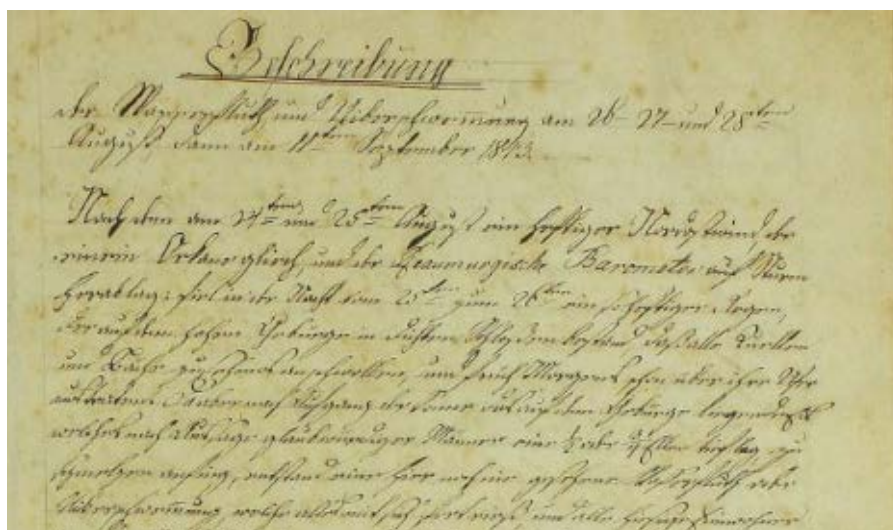 Beschreibung
der Wasserfluth und Uiberschwem̅ung am 26- 27- und 28ten
August dann am 11ten September 18
Nach dem am 24ten und 25ten August ein heftiger Nordwind, der
einem Orkane glich, und der Reaumurgische Barometer auf Sturm
herablag: fiel in der Nacht vom 25ten zum 26ten ein so heftiger Regen,
der auf dem hohen Gebürge in dichten Schloßen bestand, daß alle Quellen
und Bäche zusehends anschwollen, und früh Morgens schon über ihre Ufer
austraten. Da aber nach Aufgang der Sonne das auf dem Gebürge liegende Eis
welches nach Aussage glaubwürdiger Männer eine ½ oder Ellen tief lag, zu
schmelzen anfing, entstand eine hier noch nie gesehene Wasserfluth oder
Uiberschwem̅ung, welche alles mit sich fort riß und alle hiesige Einwohner